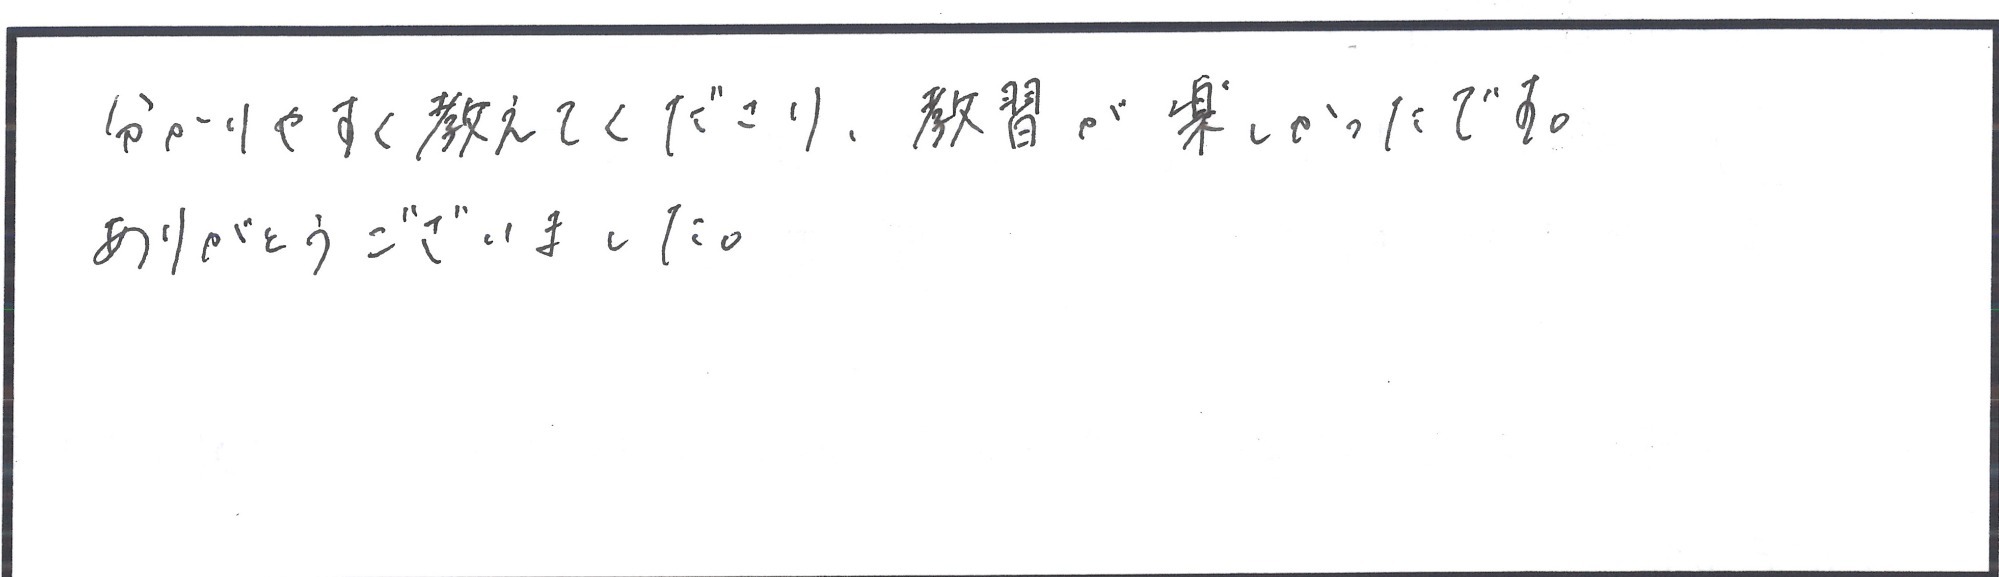 分かりやすく教えてくださり、教習が楽しかったです。
ありがとうございました。